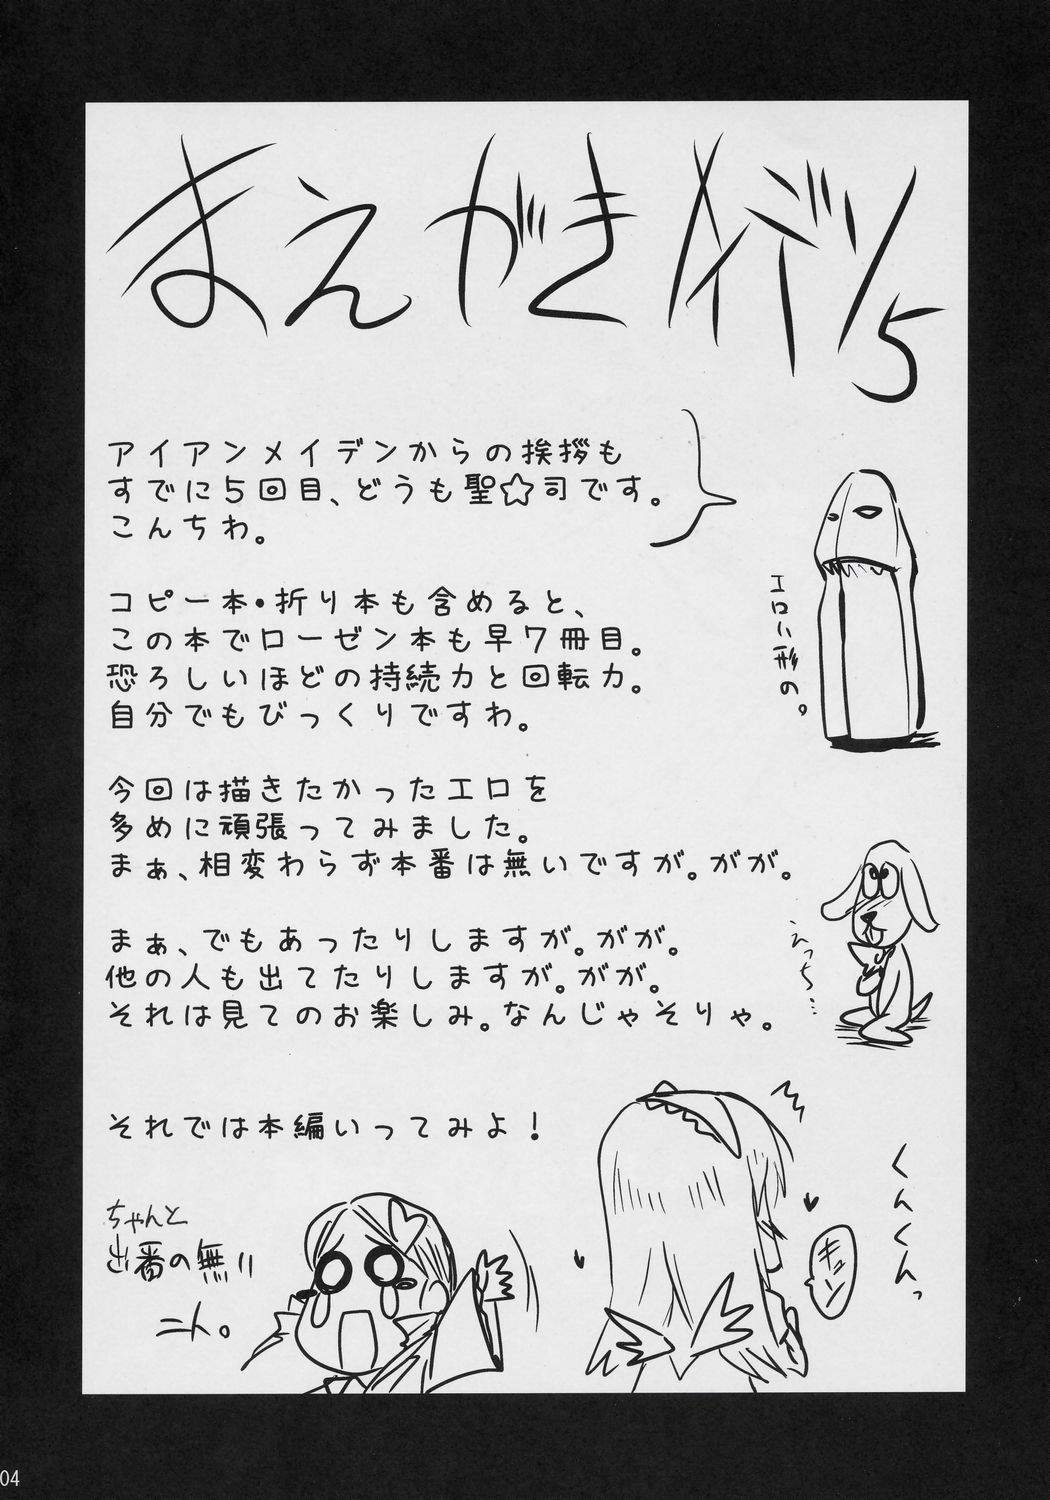 まえがきメイデン5
アイアンメイデンからの挨拶も
すでに5回目、どうも聖☆司です。
こんちわ。
エロい形の。
コピー本・折り本も含めると、
この本でローゼン本も早7冊目。
恐ろしいほどの持続力と回転力。
自分でもびっくりですわ。
今回は描きたかったエロを
多めに頑張ってみました。
まぁ、相変わらず本番は無いですが。がが。
えっち…
まぁ、でもあったりしますが。がが。
他の人も出てたりしますが。がが。
それは見てのお楽しみ。なんじゃそりゃ。
それでは本編いってみよ！
くんくんっ
キュン
ちゃんと
出番の無い
ニト。
04